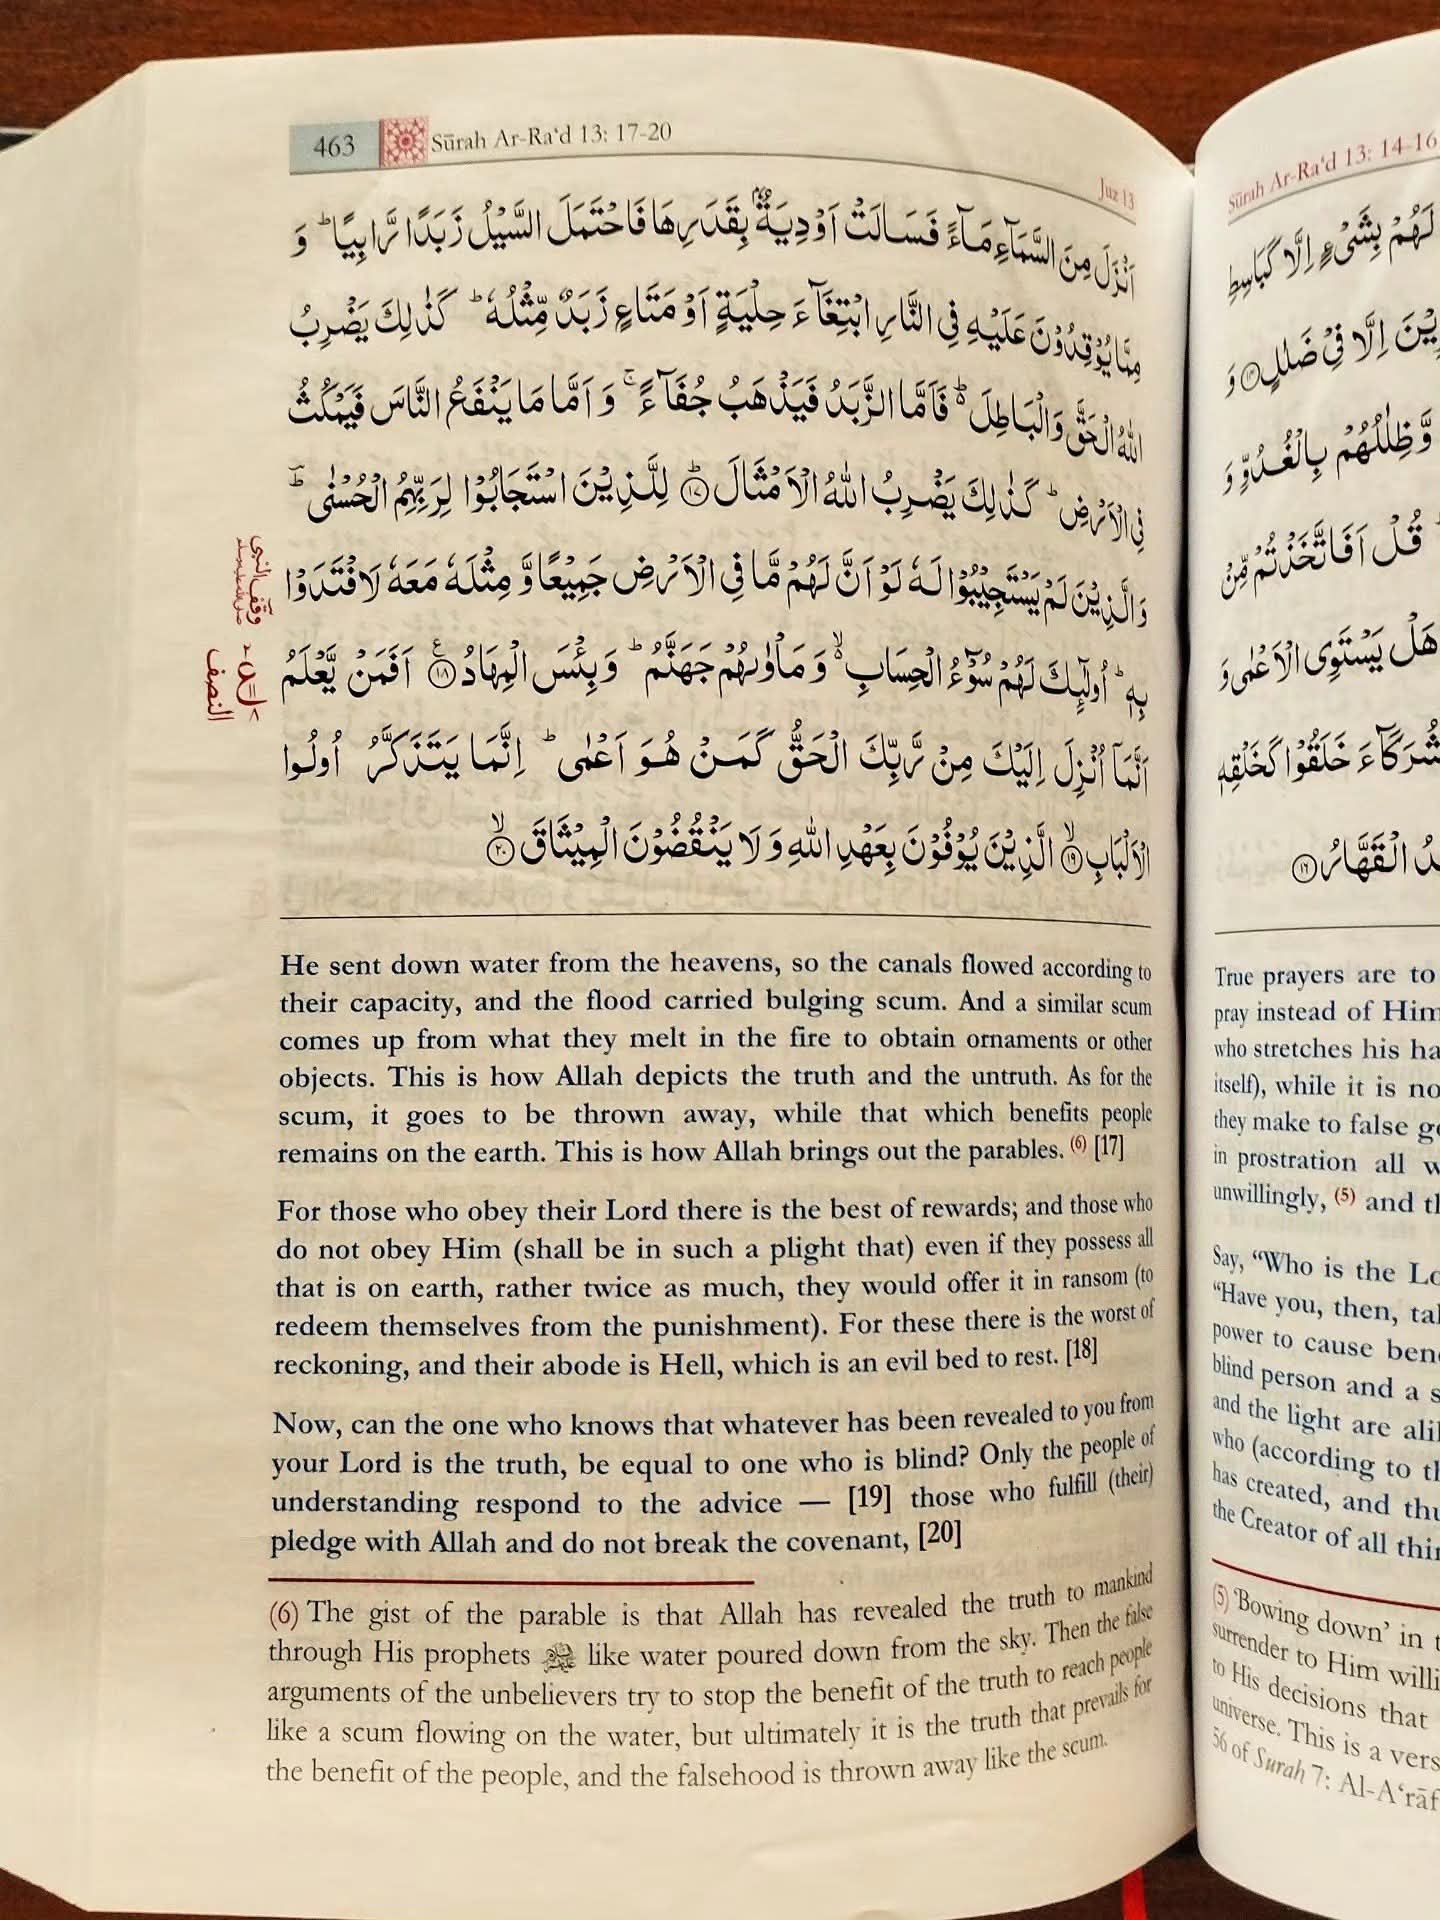 463 Sūrah Ar-Ra‘d 13: 17-20
Juz 13
اَنْزَلَ مِنَ السَّمَآءِ مَآءً فَسَالَتْ اَوْدِيَةٌۢ بِقَدَرِهَا فَاحْتَمَلَ السَّيْلُ زَبَدًا رَّابِيًا ؕ وَ
مِمَّا يُوْقِدُوْنَ عَلَيْهِ فِى النَّارِ ابْتِغَآءَ حِلْيَةٍ اَوْ مَتَاعٍ زَبَدٌ مِّثْلُهٗ ؕ كَذٰلِكَ يَضْرِبُ
اللّٰهُ الْحَقَّ وَالْبَاطِلَ ؕ۬ فَاَمَّا الزَّبَدُ فَيَذْهَبُ جُفَآءً ۚ وَ اَمَّا مَا يَنْفَعُ النَّاسَ فَيَمْكُثُ
فِى الْاَرْضِ ؕ كَذٰلِكَ يَضْرِبُ اللّٰهُ الْاَمْثَالَ ؕ۝۱۷ لِلَّذِيْنَ اسْتَجَابُوْا لِرَبِّهِمُ الْحُسْنٰى ؔؕ
وَالَّذِيْنَ لَمْ يَسْتَجِيْبُوْا لَهٗ لَوْ اَنَّ لَهُمْ مَّا فِى الْاَرْضِ جَمِيْعًا وَّ مِثْلَهٗ مَعَهٗ لَافْتَدَوْا
بِهٖ ؕ اُولٰٓئِكَ لَهُمْ سُوْٓءُ الْحِسَابِ ۙ۬ وَ مَاْوٰىهُمْ جَهَنَّمُ ؕ وَ بِئْسَ الْمِهَادُ ۝۱۸ اَفَمَنْ يَّعْلَمُ
اَنَّمَاۤ اُنْزِلَ اِلَيْكَ مِنْ رَّبِّكَ الْحَقُّ كَمَنْ هُوَ اَعْمٰى ؕ اِنَّمَا يَتَذَكَّرُ اُولُوا
الْاَلْبَابِ ۙ۝۱۹ الَّذِيْنَ يُوْفُوْنَ بِعَهْدِ اللّٰهِ وَ لَا يَنْقُضُوْنَ الْمِيْثَاقَ ۙ۝۲۰
النصف
He sent down water from the heavens, so the canals flowed according to
their capacity, and the flood carried bulging scum. And a similar scum
comes up from what they melt in the fire to obtain ornaments or other
objects. This is how Allah depicts the truth and the untruth. As for the
scum, it goes to be thrown away, while that which benefits people
remains on the earth. This is how Allah brings out the parables. (6) [17]
For those who obey their Lord there is the best of rewards; and those who
do not obey Him (shall be in such a plight that) even if they possess all
that is on earth, rather twice as much, they would offer it in ransom (to
redeem themselves from the punishment). For these there is the worst of
reckoning, and their abode is Hell, which is an evil bed to rest. [18]
Now, can the one who knows that whatever has been revealed to you from
your Lord is the truth, be equal to one who is blind? Only the people of
understanding respond to the advice — [19] those who fulfill (their)
pledge with Allah and do not break the covenant, [20]
(6) The gist of the parable is that Allah has revealed the truth to mankind
through His prophets ﷺ like water poured down from the sky. Then the false
arguments of the unbelievers try to stop the benefit of the truth to reach people
like a scum flowing on the water, but ultimately it is the truth that prevails for
the benefit of the people, and the falsehood is thrown away like the scum.
Sūrah Ar-Ra‘d 13: 14-16
لَهُمْ بِشَىْءٍ اِلَّا كَبَاسِطِ
اِلَّا فِىْ ضَلٰلٍ ۝۱۴ وَ
وَّظِلٰلُهُمْ بِالْغُدُوِّ وَ
قُلْ اَفَاتَّخَذْتُمْ مِّنْ
هَلْ يَسْتَوِى الْاَعْمٰى وَ
شُرَكَآءَ خَلَقُوْا كَخَلْقِهٖ
الْقَهَّارُ ۝۱۶
True prayers are to
pray instead of Him
who stretches his
itself), while it is
they make to false
in prostration all
unwillingly, (5) and
Say, “Who is the
“Have you, then,
power to cause
blind person and a
and the light are
who (according to
has created, and
the Creator of all
(5) ‘Bowing down’ in
surrender to Him
to His decisions that
universe. This is a
56 of Surah 7: Al-A‘rāf